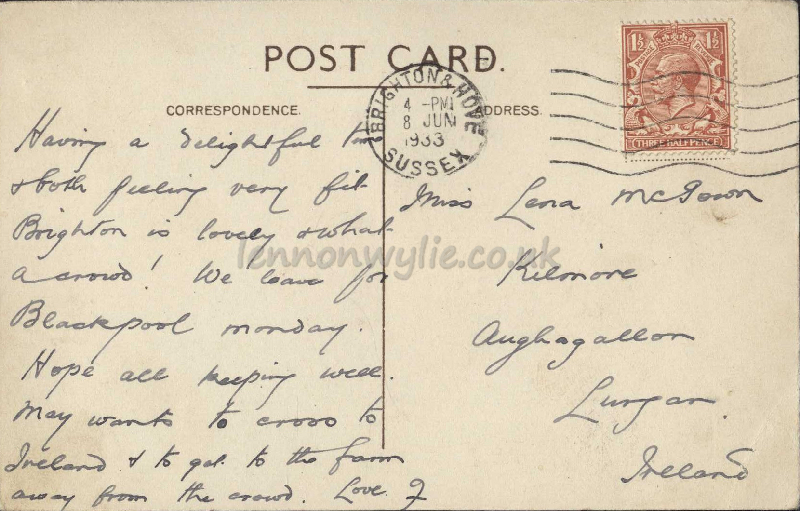 POST CARD.
CORRESPONDENCE.
ADDRESS.
BRIGHTON & HOVE
4 - PM
8 JUN
1933
SUSSEX
1½ 1½
THREE HALFPENCE
Having a delightful
& both feeling very fit
Brighton is lovely & what
a crowd! We leave for
Blackpool monday.
Hope all keeping well.
May wants to cross to
Ireland & to get to the farm
away from the crowd. Love J
Miss Lena McGown
Kilmore
Aughagallon
Lurgan.
Ireland
lennonwylie.co.uk